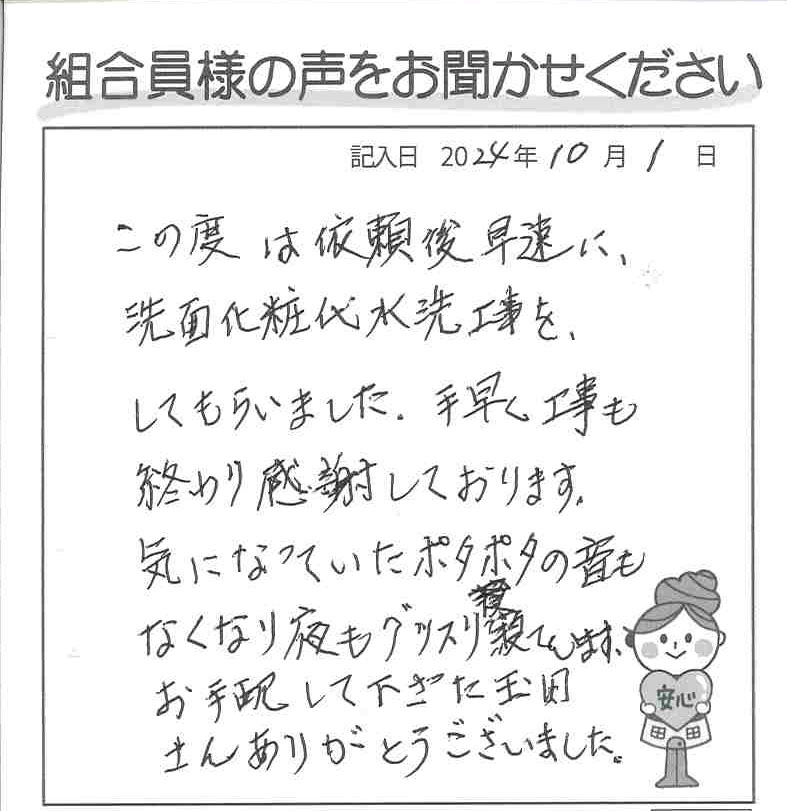 組合員様の声をお聞かせください
記入日 2024年10月1日
この度は依頼後早速に、
洗面化粧代水洗工事を、
してもらいました。手早く工事も
終わり感謝しております。
気になっていたポタポタの音も
なくなり夜もグッスリ寝てます。
お手配して下さた玉田
さんありがとうございました。
安心